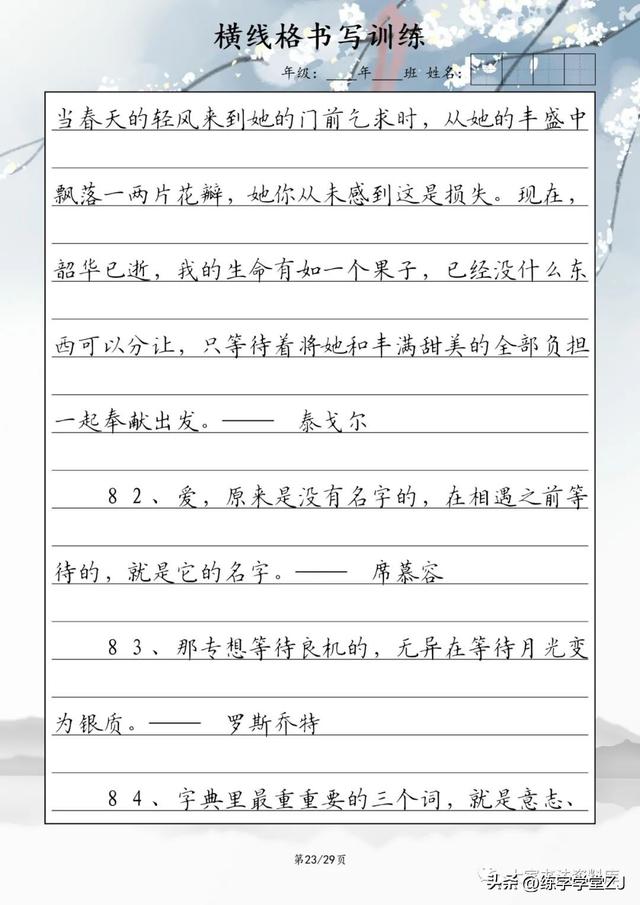 横线格书写训练
年级：____年____班 姓名：
当春天的轻风来到她的门前乞求时，从她的丰盛中
飘落一两片花瓣，她你从未感到这是损失。现在，
韶华已逝，我的生命有如一个果子，已经没什么东
西可以分让，只等待着将她和丰满甜美的全部负担
一起奉献出发。—— 泰戈尔
82、爱，原来是没有名字的，在相遇之前等
待的，就是它的名字。—— 席慕容
83、那专想等待良机的，无异在等待月光变
为银质。—— 罗斯乔特
84、字典里最重重要的三个词，就是意志、
第23/29页
头条@练字学堂ZJ